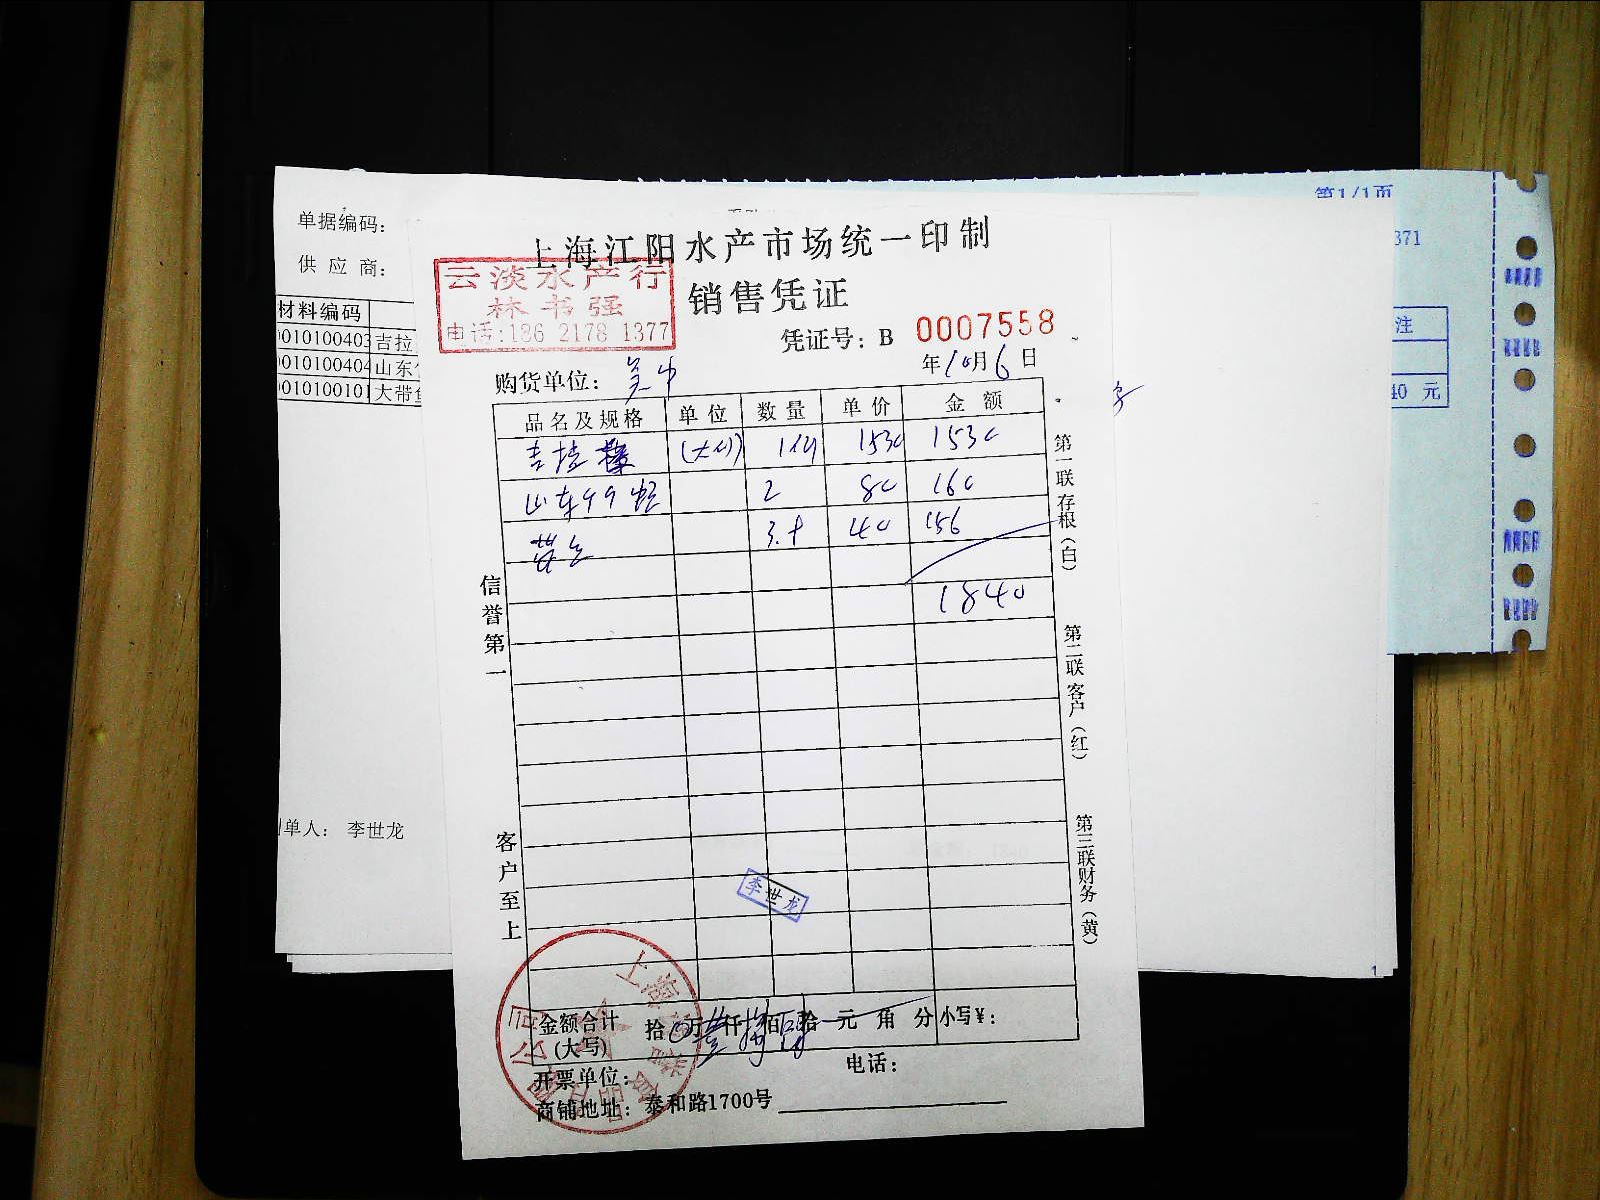 第1/1页
单据编码：
371
供 应 商：
上海江阳水产市场统一印制
云淡水产行
林书强
电话:186 2178 1377
销售凭证
凭证号：B 0007558
材料编码
注
年10月6日
购货单位：
0010100403 吉拉
0010100404 山东
0010100101 大带鱼
40 元
品名及规格 单位 数量 单价 金额
吉拉 1530 1530
山东 2 80 160
40 156
1840
第一联存根（白）
第二联客户（红）
第三联财务（黄）
信誉第一
客户至上
单人： 李世龙
李世龙
1
上海
公司
金额合计
(大写)
拾 万 仟 佰 拾 元 角 分 小写¥：
开票单位：
电话：
商铺地址：泰和路1700号